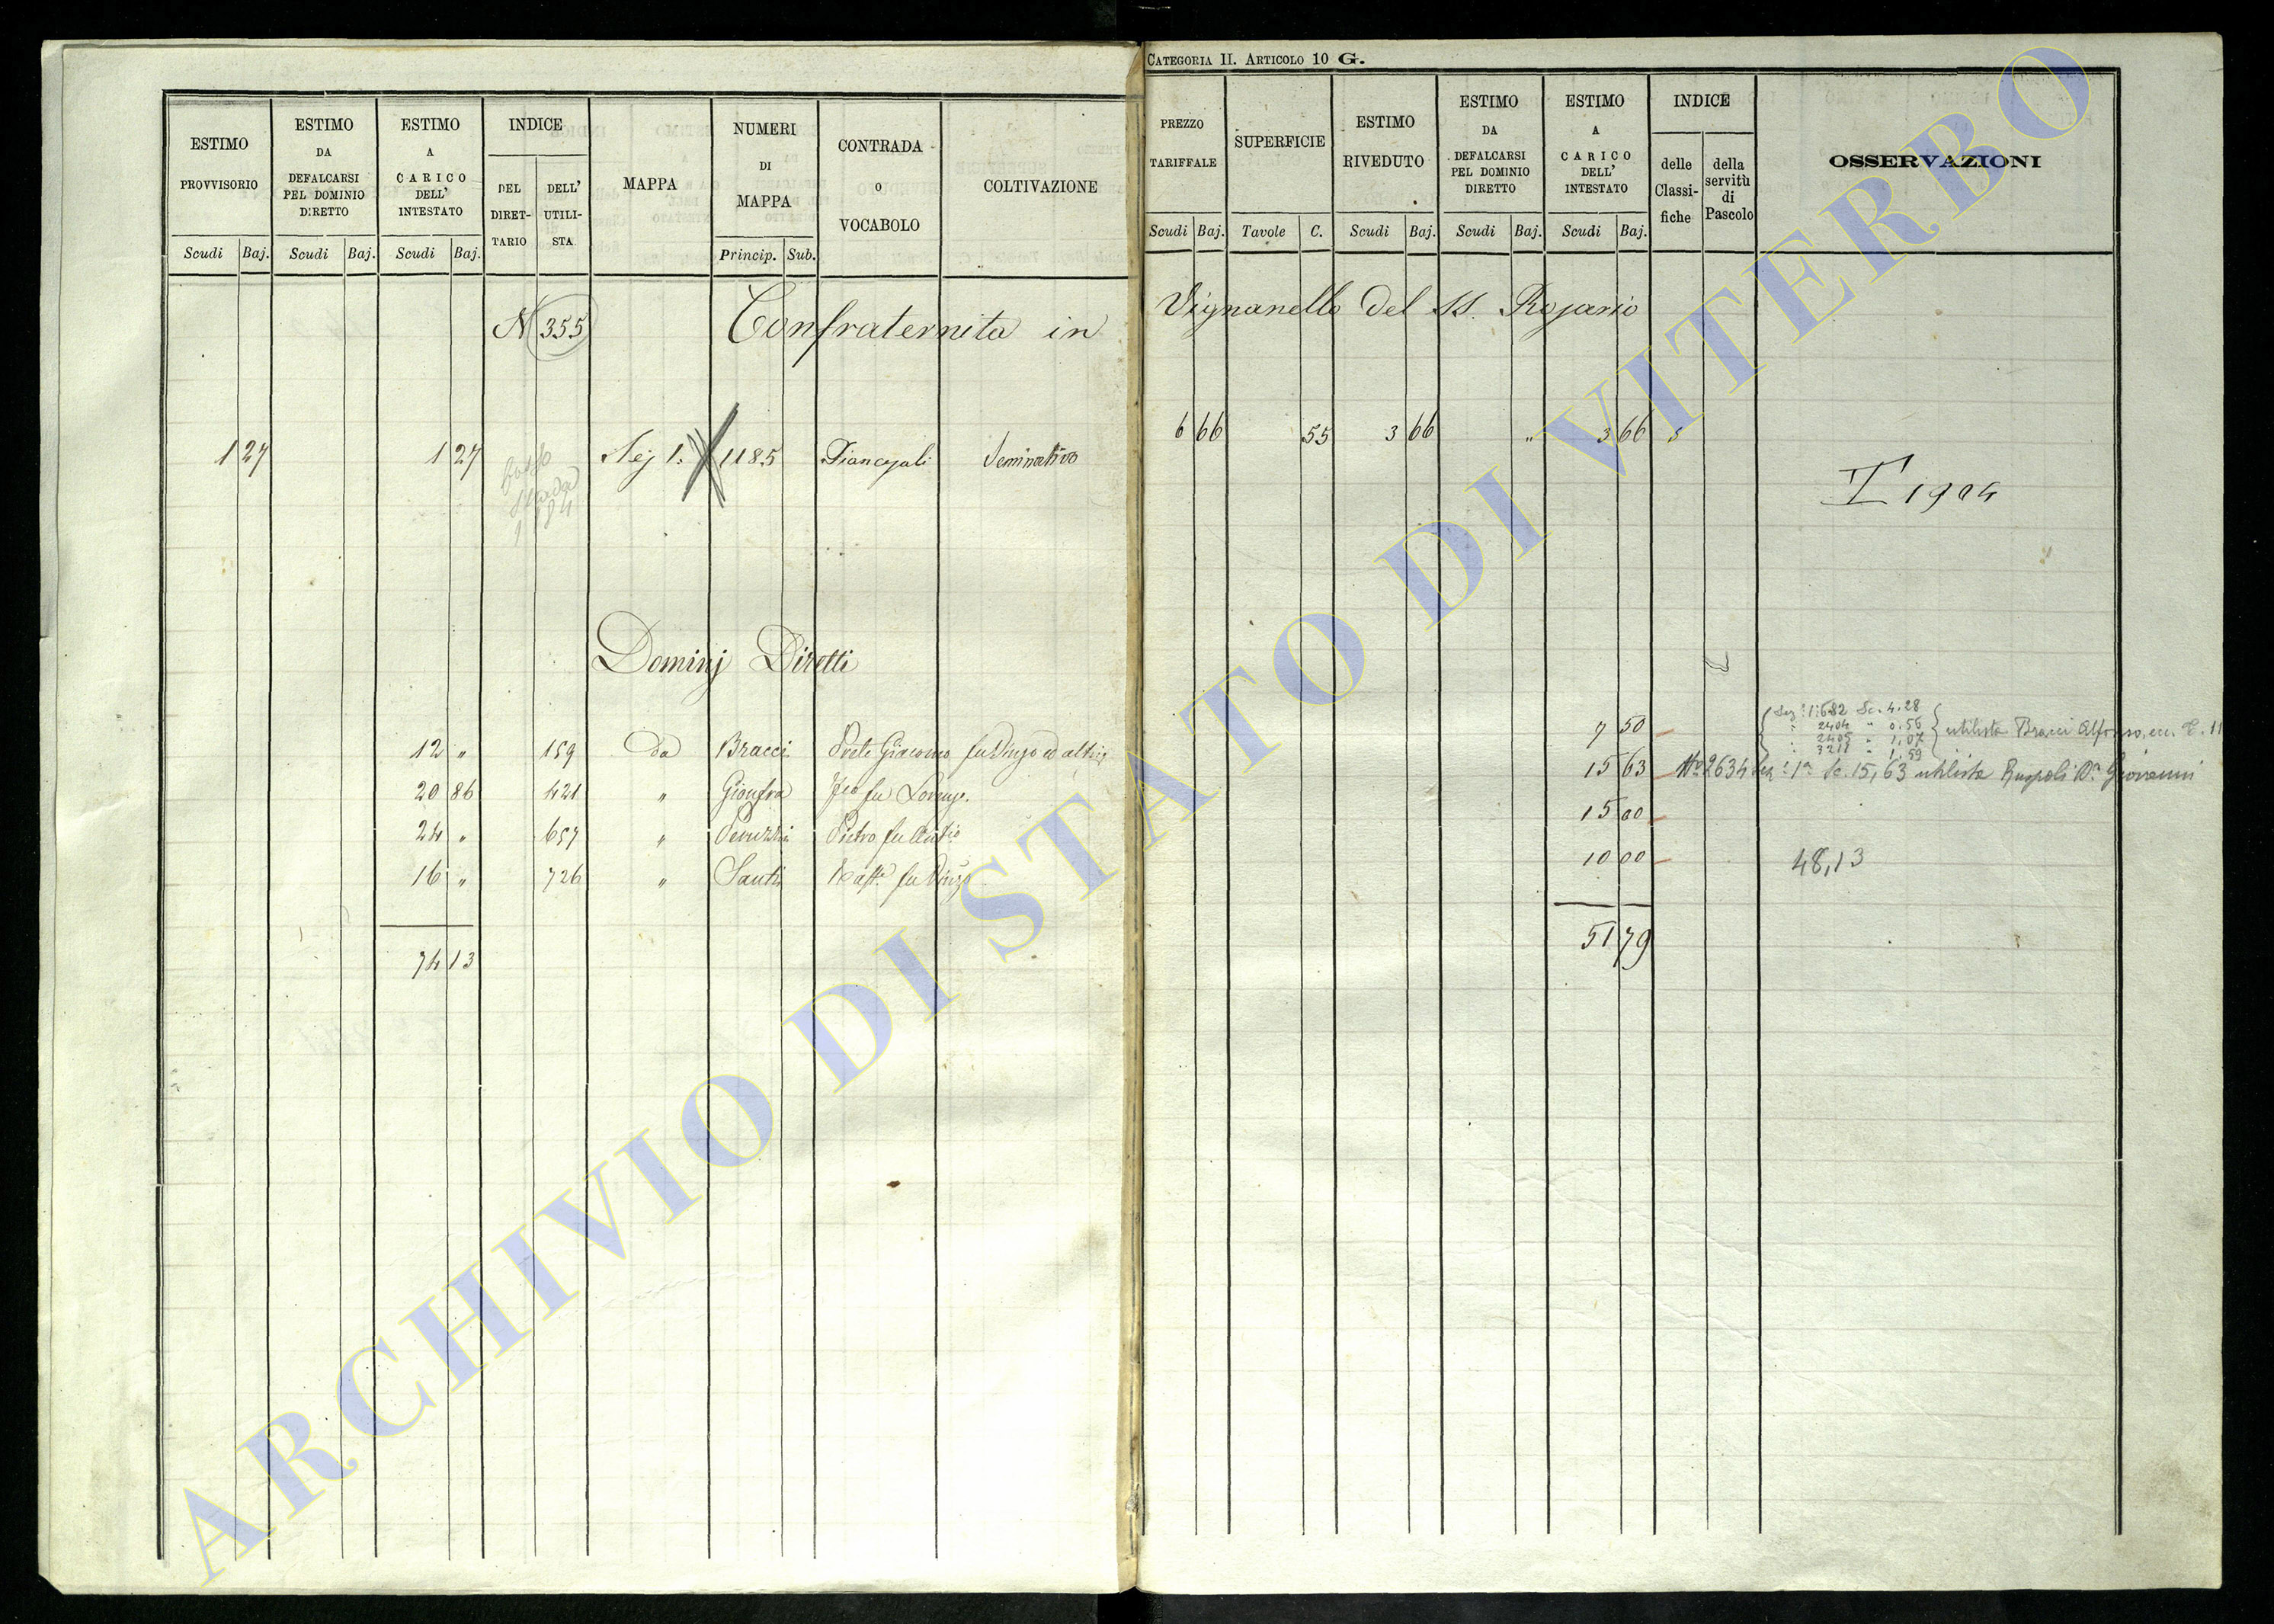 CATEGORIA II. ARTICOLO 10 G.
ESTIMO PROVVISORIO
Scudi Baj.
ESTIMO DA DEFALCARSI PEL DOMINIO DIRETTO
Scudi Baj.
ESTIMO A CARICO DELL' INTESTATO
Scudi Baj.
INDICE
DEL DIRETTARIO
DELL' UTILISTA
MAPPA
NUMERI DI MAPPA
Princip. Sub.
CONTRADA o VOCABOLO
COLTIVAZIONE
PREZZO TARIFFALE
Scudi Baj.
SUPERFICIE
Tavole C.
ESTIMO RIVEDUTO
Scudi Baj.
ESTIMO DA DEFALCARSI PEL DOMINIO DIRETTO
Scudi Baj.
ESTIMO A CARICO DELL' INTESTATO
Scudi Baj.
INDICE
delle Classifiche
della servitù di Pascolo
OSSERVAZIONI
N 355 Confraternita in Vignanello del SS. Rosario
1 27 1 27 Sez 1. 1185 Piancagali Seminativo 6 66 55 3 66 " 3 66 5
strada
1184
I 1904
Dominj Diretti
12 " 159 da Bracci Prete Giacomo fu Vinzo ed altri 7 50
Sez 1. 1682 Sc. 4.28
" 2404 " 0.56
" 2405 " 1,07
" 3211 " 1.59
utilista Bracci Alfonso, ecc.
20 86 421 " Gionfra fu Lorenzo. 15 63 No 2634 Sez. 1a Sc. 15,63 utilista Ruspoli Dn Giovanni
24 " 657 " Peruzzi Pietro fu 15 00
16 " 726 " Santi fu Vinzo 10 00 48,13
74 13 51 79
ARCHIVIO DI STATO DI VITERBO